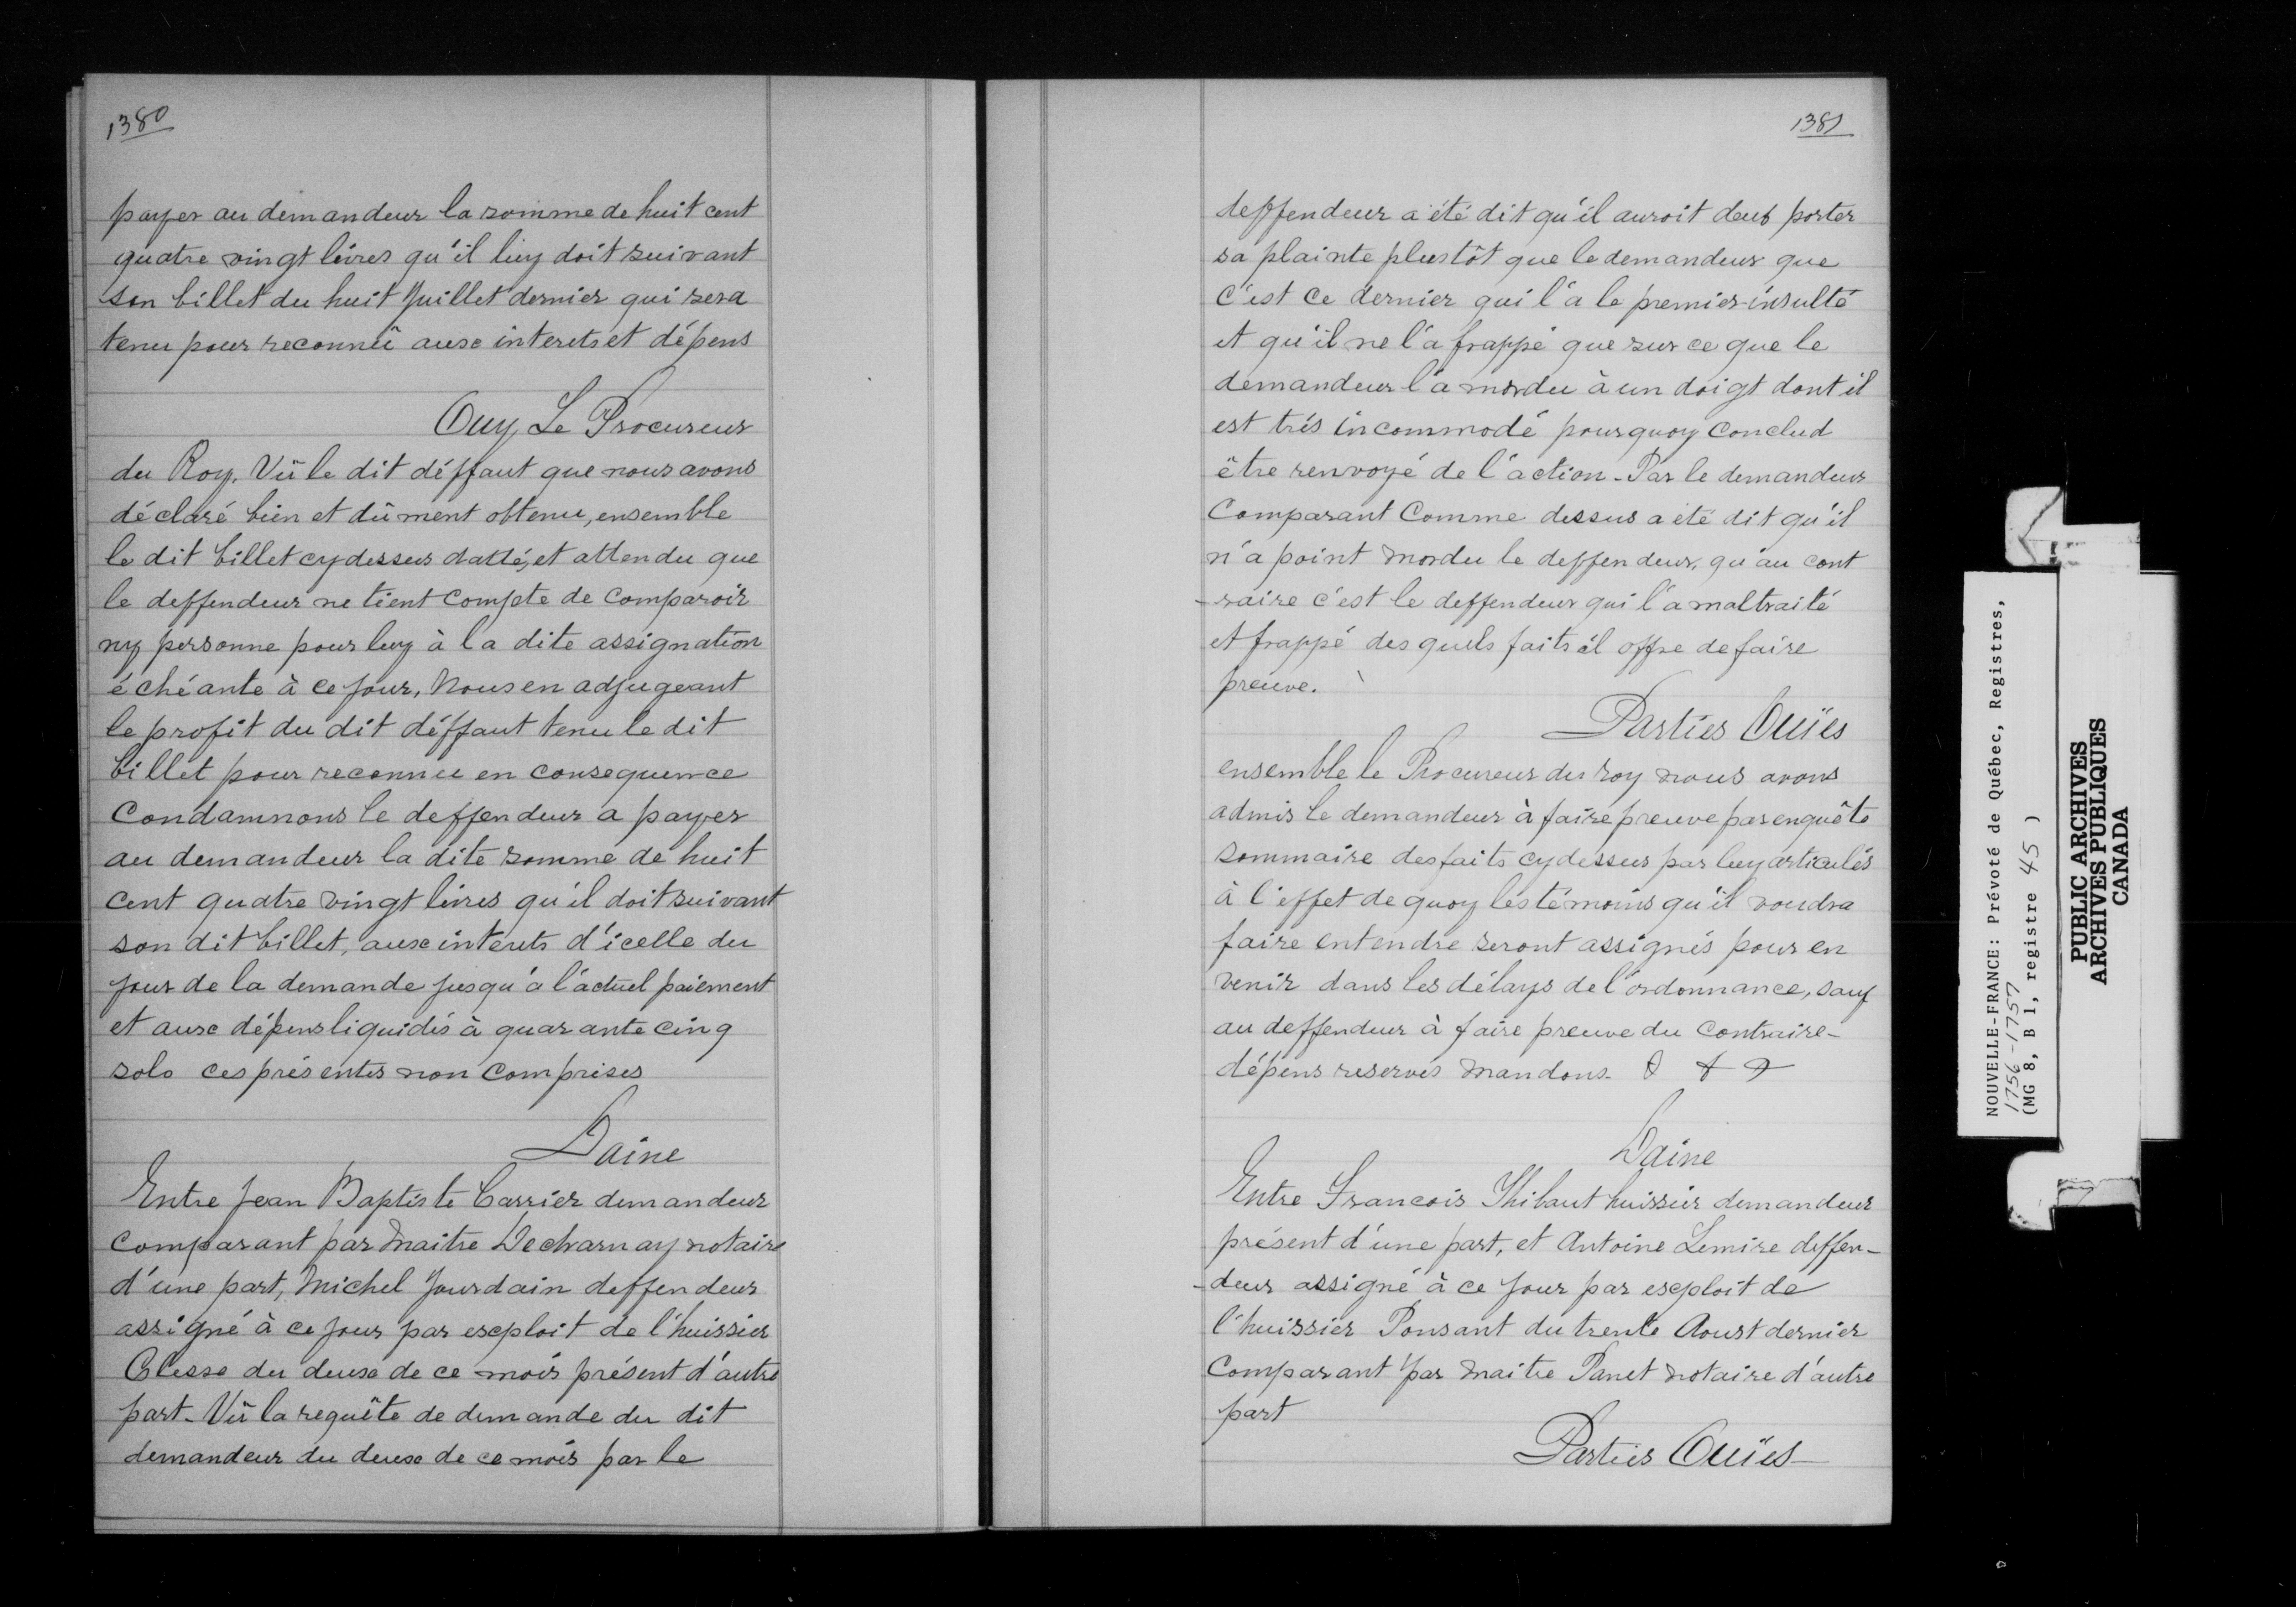 1380
payer au demandeur la somme de huit cent
quatre vingt livres qu'il luy doit suivant
son billet du huit Juillet dernier qui sera
tenu pour reconnû aux interets et dépens
Ouy Le Procureur
du Roy. Vû le dit déffaut que nous avons
déclaré bien et dûment obtenu, ensemble
le dit billet cy dessus datté, et attendu que
le deffendeur ne tient compte de comparoir
ny personne pour luy à la dite assignation
échéante à ce jour, Nous en adjugeant
le profit du dit déffaut tenu le dit
billet pour reconnu en consequence
Condamnons le deffendeur a payer
au demandeur la dite somme de huit
cent quatre vingt livres qu'il doit suivant
son dit billet, aux interets d'icelle du
jour de la demande jusqu'à l'actuel paiement
et aux dépens liquidés à quarante cinq
sols ces présentes non comprises
Daine
Entre Jean Baptiste Carrier demandeur
comparant par Maitre Decharnay notaire
d'une part, Michel Jourdain deffendeur
assigné à ce jour par exploit de l'huissier
Clesse du deux de ce mois présent d'autre
part. Vû la requête de demande du dit
demandeur du deux de ce mois par le
1381
deffendeur a été dit qu'il auroit deub porter
sa plainte plustôt que le demandeur que
c'est ce dernier qui l'a le premier insulté
et qu'il ne l'a frappé que sur ce que le
demandeur l'a mordu à un doigt dont il
est trés incommodé pourquoy conclud
être renvoyé de l'action - Par le demandeur
Comparant Comme dessus a été dit qu'il
n'a point mordu le deffendeur, qu'au cont
-raire c'est le deffendeur qui l'a maltraité
et frappé des quels faits il offre de faire
preuve.
Parties Ouïes
ensemble le Procureur du roy nous avons
admis le demandeur à faire preuve par enquête
sommaire des faits cy dessus par luy articulés
à l'effet de quoy les témoins qu'il voudra
faire entendre seront assignés pour en
venir dans les délays de l'ordonnance, sauf
au deffendeur à faire preuve du contraire -
dépens reservés mandons.
Daine
Entre Francois Thibaut huissier demandeur
présent d'une part, et Antoine Lemire deffen-
-deur assigné à ce jour par exploit de
l'huissier Ponsant du trente Aoust dernier
Comparant par Maitre Panet Notaire d'autre
part
Parties Ouïes
NOUVELLE-FRANCE: Prévoté de Québec, Registres,
1756-1757
(MG 8, B 1, registre 45 )
PUBLIC ARCHIVES
ARCHIVES PUBLIQUES
CANADA